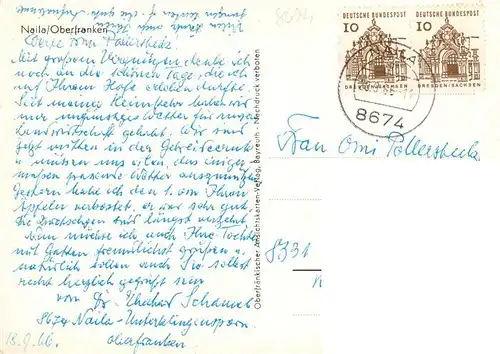 Vielen Dank für
Naila/Oberfranken
Mit großem Vergnügen denke ich
noch an die schönen Tage, die ich
auf Ihrem Hofe erleben durfte.
Seit meiner Heimkehr haben wir
nur ungünstiges Wetter für unsere
Landwirtschaft gehabt. Wir sind
jetzt mitten in der Getreideernte
u. müssen uns eilen, das einiger-
maßen passende Wetter auszunützen
Gestern habe ich den 1. von Ihren
Äpfeln verkostet, er war sehr gut,
die Zwetschgen sind längst verzehrt
Nun möchte ich auch Ihre Tochter
mit Gatten freundlichst grüßen u.
natürlich sollen auch Sie selbst
recht herzlich gegrüßt sein
von Dr. Ekehard
8674 Naila-Unterklingensporn
18.9.66. Oberfranken
Oberfränkischer Ansichtskarten-Verlag, Bayreuth - Nachdruck verboten
DEUTSCHE BUNDESPOST
10
DRESDEN/SACHSEN
DEUTSCHE BUNDESPOST
10
DRESDEN/SACHSEN
8674
Frau Omi Pollersheide
8331